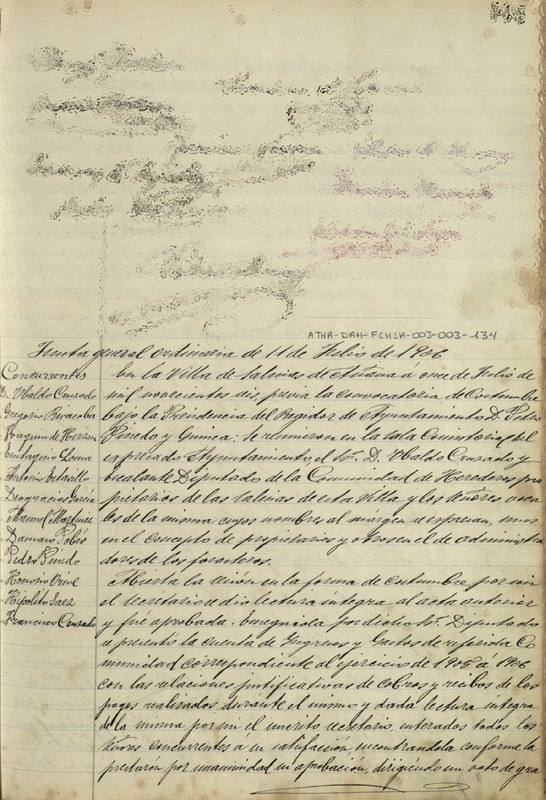 ATHA-DAH-FCHSA-003-003-134
Junta general ordinaria de 11 de Julio de 1906
Concurrentes
D. Ubaldo Cruzado
Gregorio Ruracoba
Joaquin de Herran
Eustaquio Loma
Antonio
Deogracias Garcia
Manuel Martinez
Damaso Pobes
Pedro Pinedo
Honorio Orive
Hipolito Saez
Francisco Cruzado
En la Villa de Salinas de Añana á once de Julio de
mil novecientos seis, previa la convocatoria de costumbre
bajo la Presidencia del Regidor de Ayuntamiento D. Pedro
Pinedo y Guinea: se reunieron en la sala Consistorial del
expresado Ayuntamiento el Sr. D. Ubaldo Cruzado y
Diputado de la Comunidad de Herederos pro
pietarios de las salinas de esta Villa y los señores voca
les de la misma cuyos nombres al margen se espresan, unos
en el concepto de propietarios y otros en el de administra
dores de los forasteros.
Abierta la sesion en la forma de costumbre por mi
el secretario se dio lectura integra al acta anterior
y fué aprobada. Enseguida por dicho Sr. Diputado
se presentó la cuenta de Ingresos y Gastos de referida Co
munidad correspondiente al ejercicio de 1905 á 1906
con las relaciones justificativas de cobros y recibos de los
pagos realizados durante el mismo y dada lectura integra
de la misma por mi el infrascrito secretario, enterados todos los
señores concurrentes a su satisfacción, encontrandola conforme la
prestaron por unanimidad su aprobación, dirigiendo un voto de gra